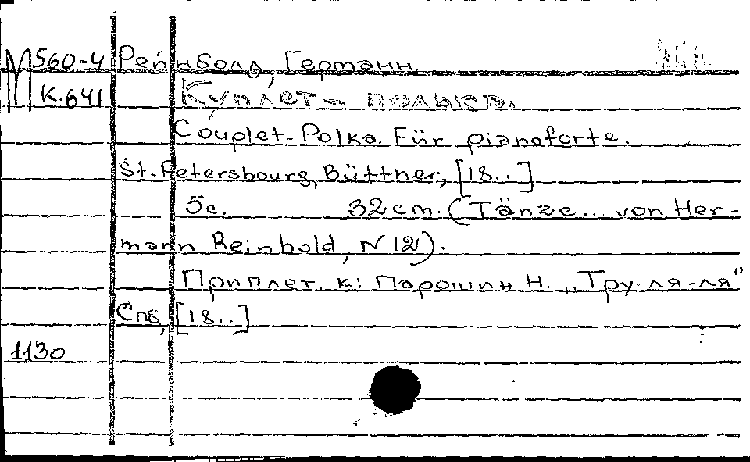 М 560-4 Рейнболд, Германн.
К.641 Куплет-полька.
Couplet-Polka. Für pianoforte.
St.-Petersbourg, Büttner, [18..]
5c. 32cm. (Tänze... von Her-
mann Reinbold, N 12).
Приплет. к: Парошин Н. „Тру-ля-ля"
Спб, [18..]
1130